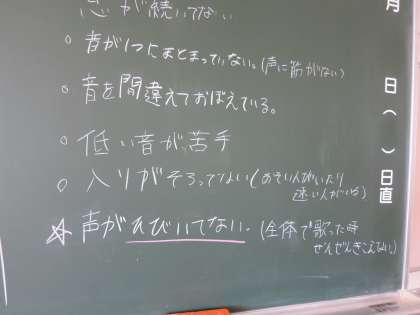 息が続いてない
○ 音が1つにまとまっていない。(声に筋がない)
○ 音を間違えておぼえている。
○ 低い音が苦手
○ 入りがそろってない(おそい人がいたり
速い人がいる)
☆ 声がひびいてない。(全体で歌った時
ぜんぜんきこえない。)
月
日
(
)
日直